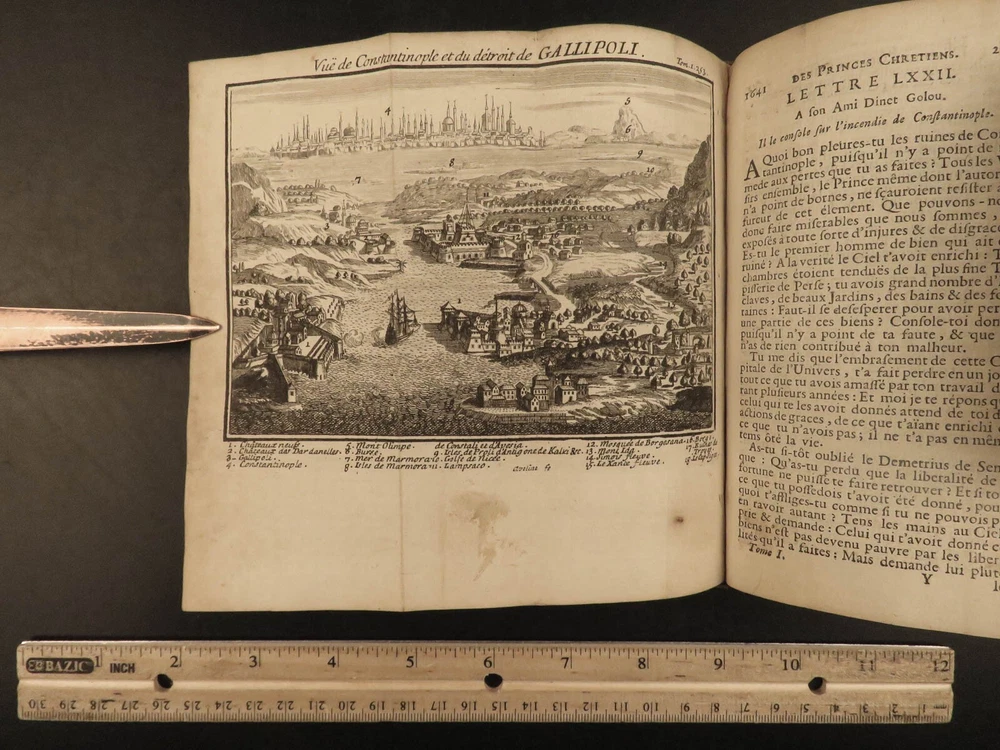 Vuë de Constantinople et du détroit de GALLIPOLI.
Tom. 1. 253.
4
5
6
7
8
9
10
3
2
1
1
1. Châteaux neufs.
2. Châteaux des Dardanelles.
3. Gallipoli.
4. Constantinople.
5. Mont Olimpe.
6. Burse.
7. Mer de Marmora
8. Isles de Marmora
de Constali et d'Aversia.
9. Isles de Proli d'Antigone de Kalei &c.
10. Golfe de Nicée.
11. Lampsaco.
12. Mosquée de Bergasana.
13. Mont Ida.
14. Simois fleuve.
15. Le Xante fleuve.
1641
DES PRINCES CHRETIENS.
2
LETTRE LXXII.
A son Ami Dinet Golou.
Il le console sur l'incendie de Constantinople.
A Quoi bon pleures-tu les ruines de Co
tantinople, puisqu'il n'y a point de
mede aux pertes que tu as faites? Tous les
firs ensemble, le Prince même dont l'autor
n'a point de bornes, ne sçauroient resister
fureur de cet élement. Que pouvons-no
donc faire miserables que nous sommes,
exposés à toute sorte d'injures & de disgrac
Es-tu le premier homme de bien qui ait
ruiné? A la verité le Ciel t'avoit enrichi: T
chambres étoient tenduës de la plus fine T
pisserie de Perse; tu avois grand nombre d'
claves, de beaux Jardins, des bains & des fo
taines: Faut-il se desesperer pour avoir per
une partie de ces biens? Console-toi don
puisqu'il n'y a point de ta faute, & que
n'as de rien contribué à ton malheur.
Tu me dis que l'embrasement de cette C
pitale de l'Univers, t'a fait perdre en un jo
tout ce que tu avois amassé par ton travail d
rant plusieurs années: Et moi je te répons q
celui qui te les avoit donnés attend de toi d
actions de graces, de ce que t'aïant enrichi
ce que tu n'avois pas; il ne t'a pas en mêm
tems ôté la vie.
As-tu si-tôt oublié le Demetrius de Sen
que: Qu'as-tu perdu que la liberalité de
fortune ne puisse te faire retrouver? Et si to
ce que tu possedois t'avoit été donné, pou
quoi t'affliges-tu comme si tu ne pouvois p
en ravoir autant? Tens les mains au Ciel
prie & demande: Celui qui t'avoit donné c
biens n'est pas devenu pauvre par les liber
lités qu'il a faites: Mais demande lui plut
Tome I.
Y
BAZIC
INCH
1 2 3 4 5 6 7 8 9 10 11 12
30 29 28 27 26 25 24 23 22 21 20 19 18 17 16 15 14 13 12 11 10 9 8 7 6 5 4 3 2 1